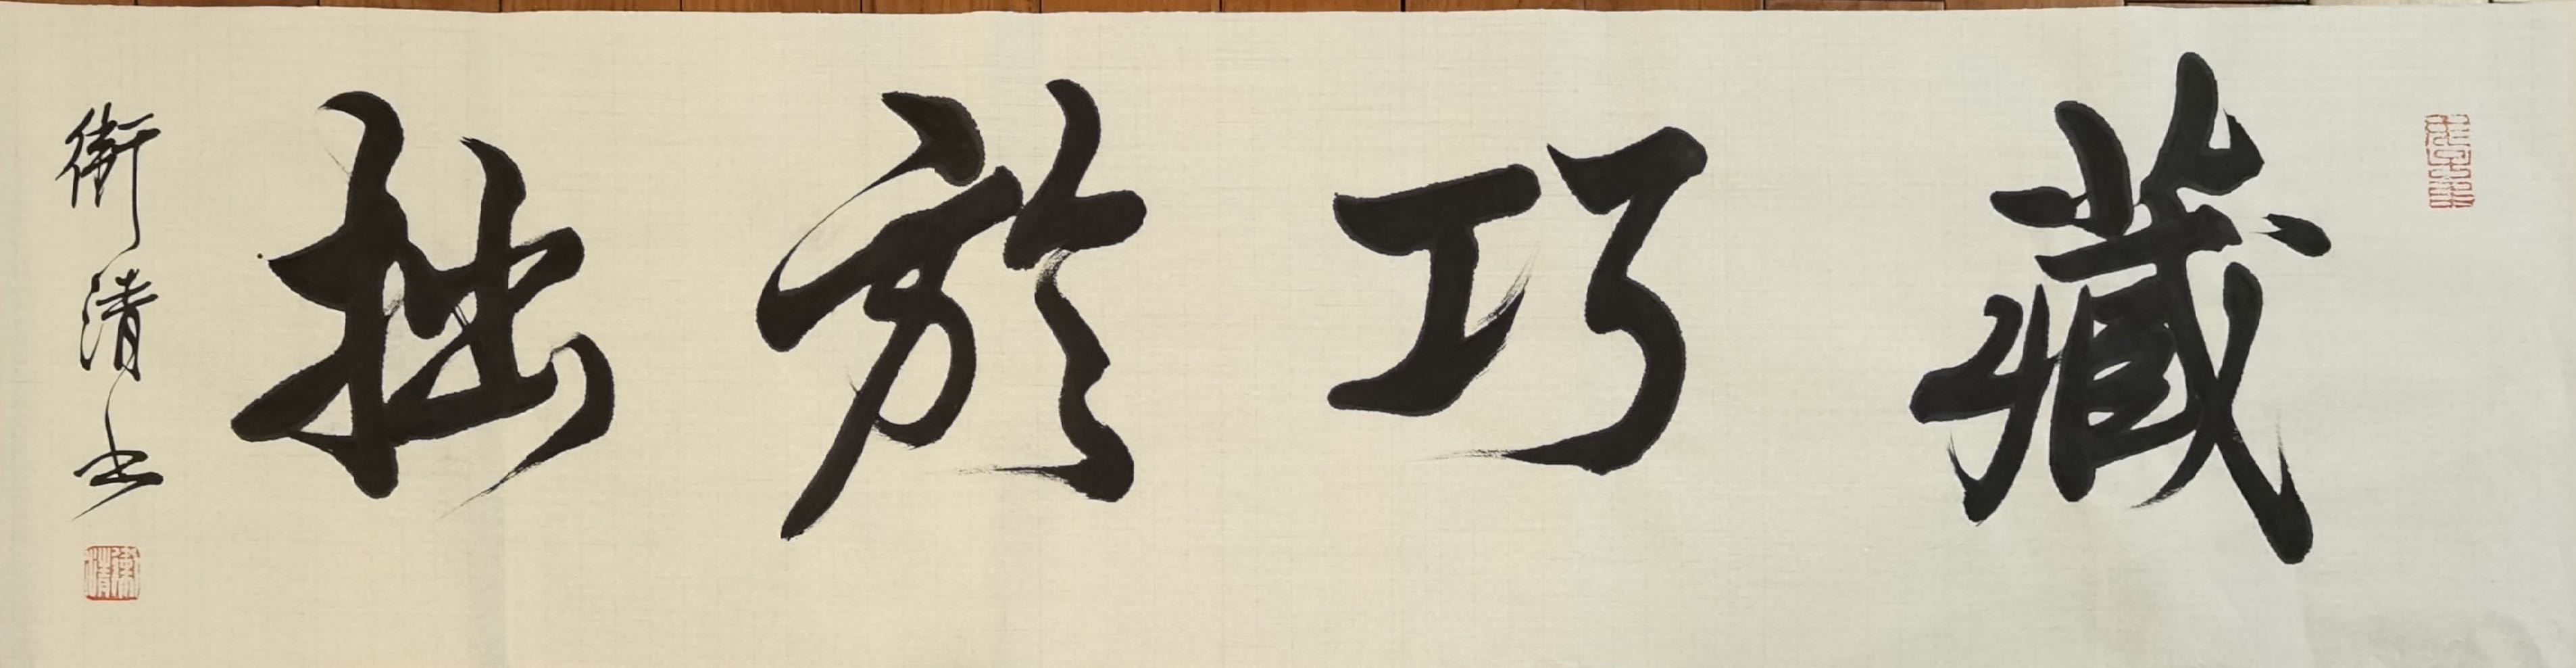 藏巧於拙
衛清書
衛清